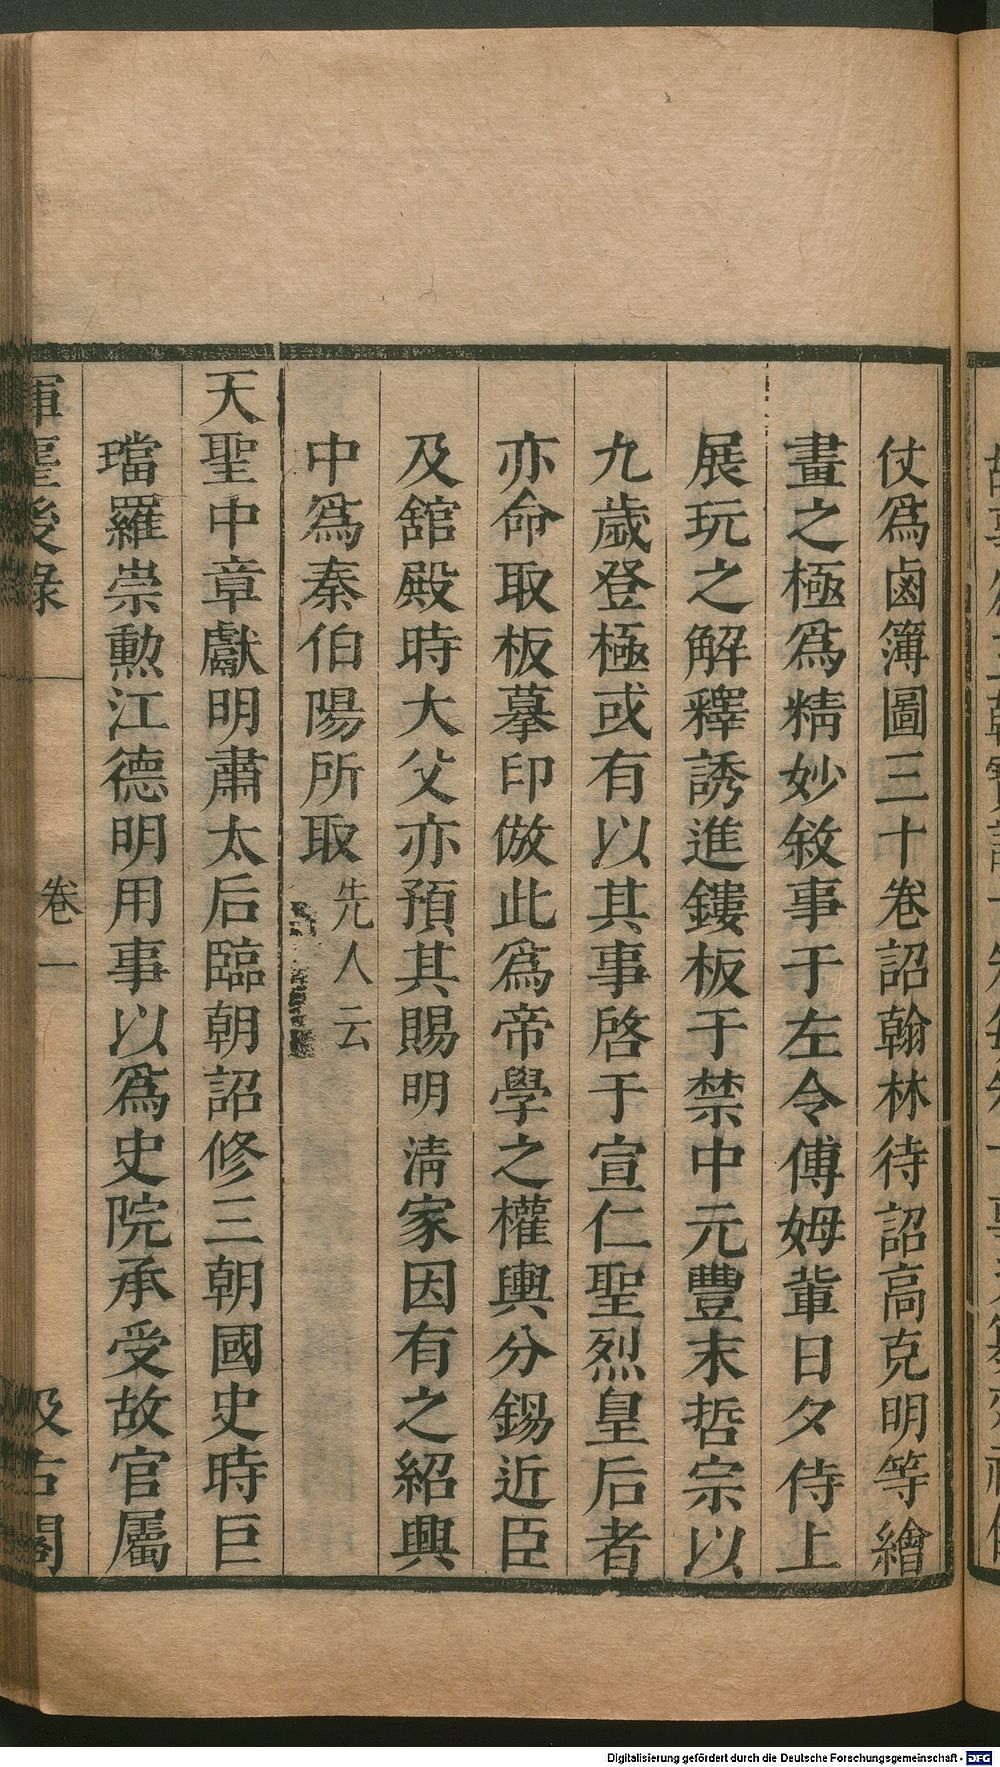 仗爲鹵簿圖三十卷詔翰林待詔高克明等繪
畫之極爲精妙敘事于左令傅姆輩日夕侍上
展玩之解釋誘進鏤板于禁中元豐末哲宗以
九歲登極或有以其事啓于宣仁聖烈皇后者
亦命取板摹印倣此爲帝學之權輿分錫近臣
及舘殿時大父亦預其賜明清家因有之紹興
中爲秦伯陽所取先人云
天聖中章獻明肅太后臨朝詔修三朝國史時巨
璫羅崇勲江德明用事以爲史院承受故官屬
後錄 卷一
Digitalisierung gefördert durch die Deutsche Forschungsgemeinschaft - DFG